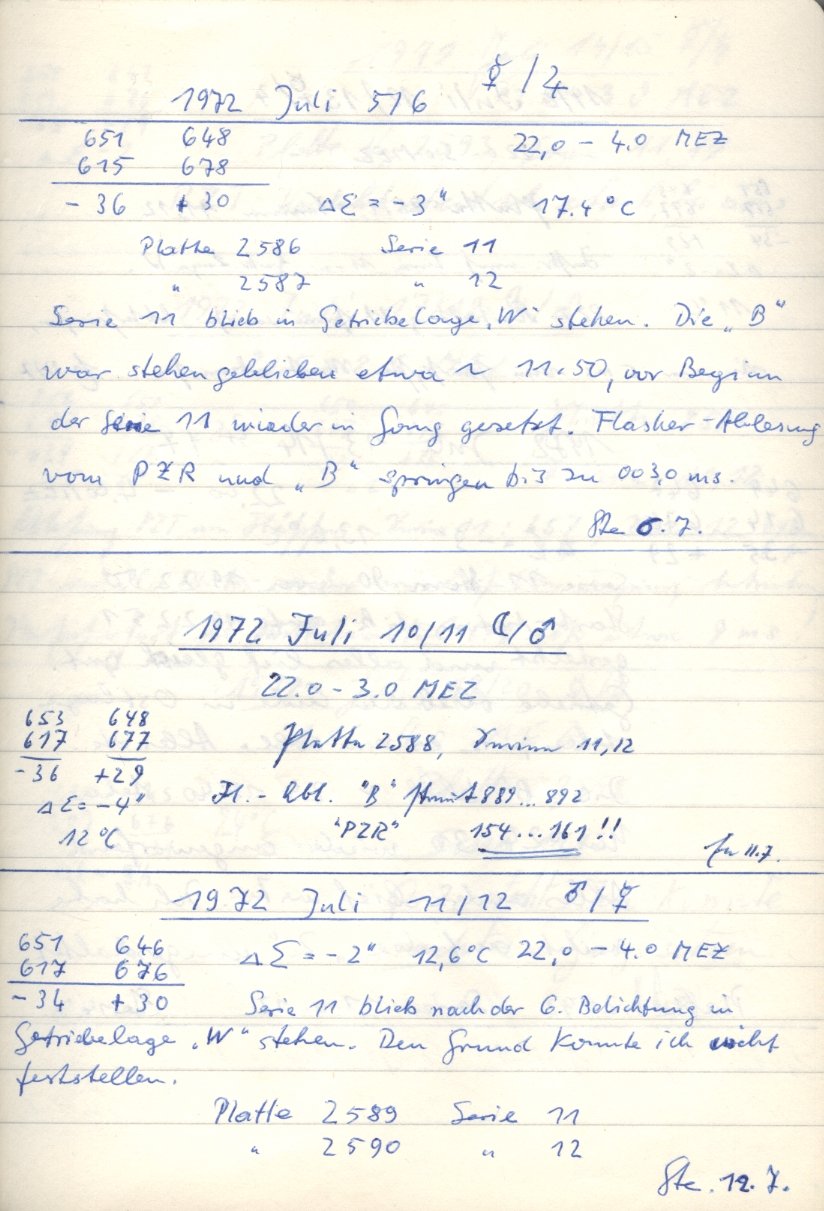 1972 Juli 5/6 ☿/♃
651 648 22,0 – 4.0 MEZ
615 678
- 36 + 30 ΔΣ = - 3" 17.4°C
Platte 2586 Serie 11
" 2587 " 12
Serie 11 blieb in Getriebelage „W" stehen. Die „B"
war stehengeblieben etwa ~ 11.50, vor Beginn
der Serie 11 wieder in Gang gesetzt. Flasher-Ablesung
vom PZR und „B" springen bis zu 003,0 ms.
Ste 6.7.
1972 Juli 10/11 ☾/♂
22.0 - 3.0 MEZ
653 648
617 677 Platte 2588, Serien 11, 12
- 36 +29
ΔΣ = - 4" Fl.-Abl. "B" 889...892
12°C "PZR" 154...161!!
11.7.
1972 Juli 11/12 ♂/☿
651 646
617 676 ΔΣ = - 2" 12,6°C 22,0 – 4.0 MEZ
- 34 + 30 Serie 11 blieb nach der 6. Belichtung in
Getriebelage „W" stehen. Den Grund konnte ich nicht
feststellen.
Platte 2589 Serie 11
" 2590 " 12
Ste. 12.7.